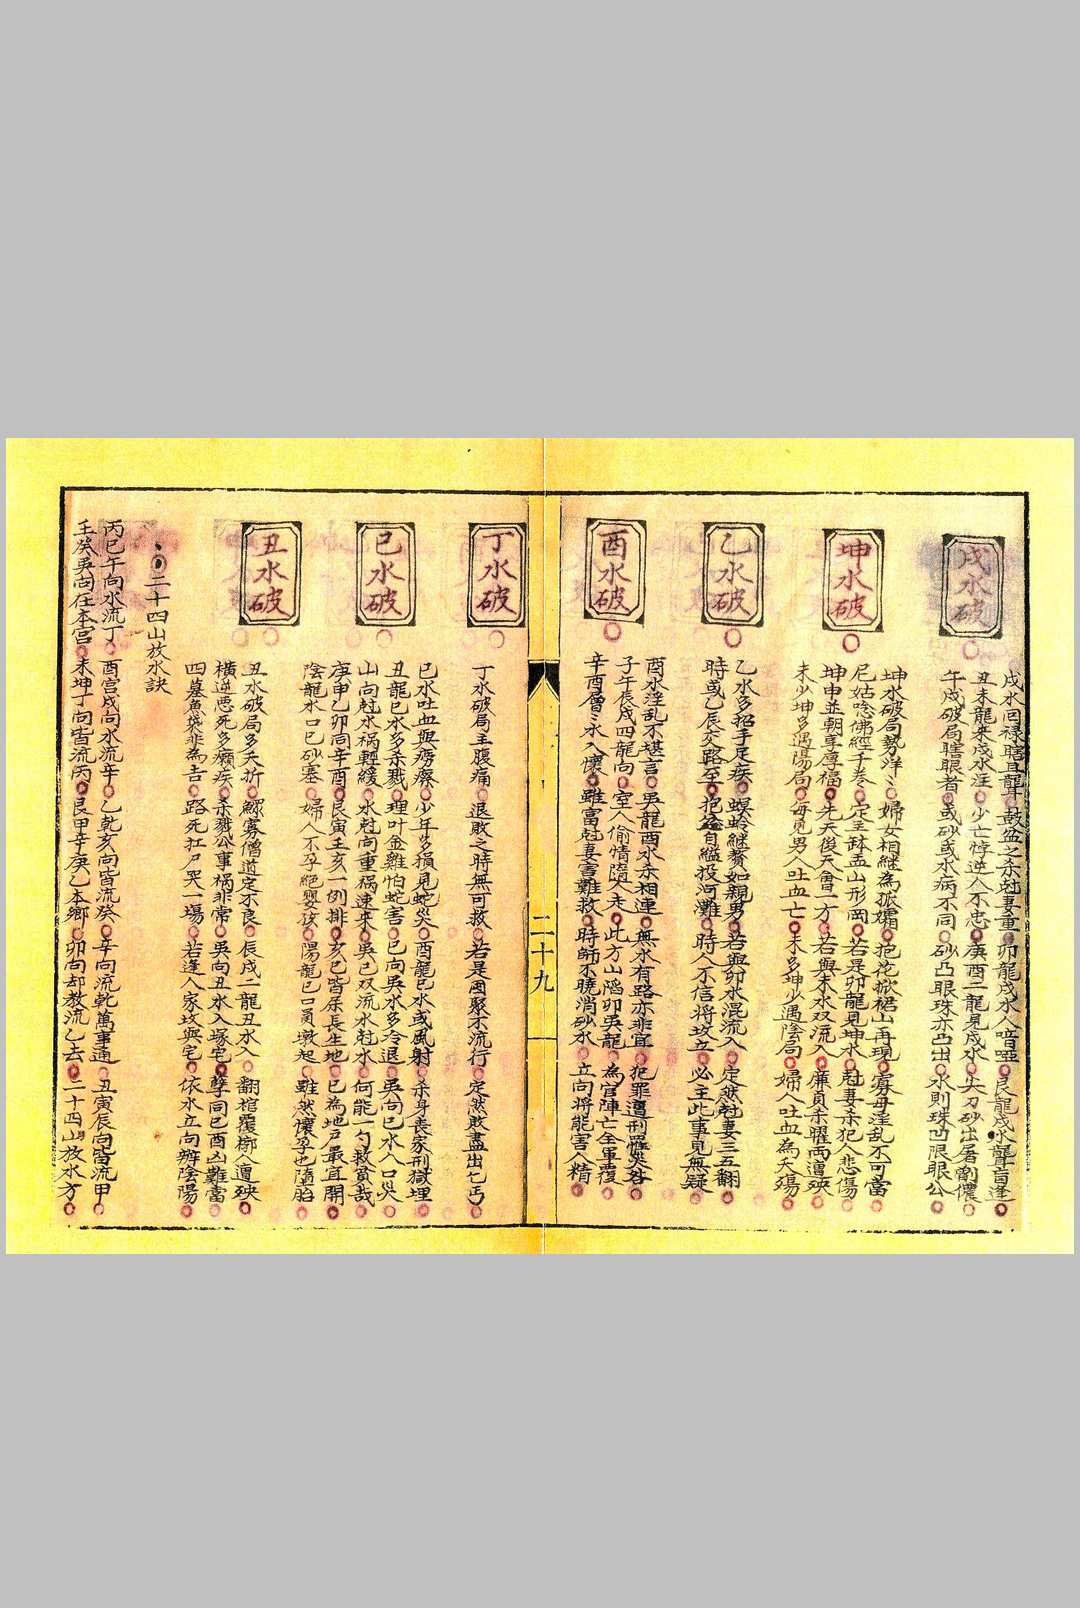 戌水破
戌水回祿瞎且聾○鼓盆之杀尅妻重○卯龍戌水人喑啞○艮龍戌水聾盲逢○
丑未龍來戌水注○少亡悖逆人不忠○庚酉二龍見戌水○尖刀砂出屠劊儂○
午戌破局瞎眼者○或砂或水病不同○砂凸眼珠亦凸出○水則珠凹限眼公○
坤水破
坤水破局勢洋〻○婦女相継為孤孀○抱花掀裙山再現○寡母淫乱不可當○
尼姑唸佛經千卷○定主缽盂山形岡○若是卯龍見坤水○尅妻杀犯人悲傷○
坤申並朝享厚福○先天後天會一方○若與未水双流入○廉貞杀曜両遭殃○
未少坤多遇陽局○每見男人吐血亡○未多坤少遇陰局○婦人吐血為夭殤○
乙水破
乙水多招手足疾○螟蛉継贅如親男○若與卯水混流入○定然尅妻三五翻○
時或乙辰交路至○抱盆自縊投河灘○時人不信将坟立○必主此事見無疑○
酉水破
酉水淫乱不堪言○巽龍酉水杀相連○無水有路亦非宜○犯罪遭刑惟災咎○
子午辰戌四龍向○室人偷情隨人走○此方山陷卯巽龍○為官陣亡全軍覆○
辛酉層〻水入懷○雖富尅妻害難救○時師不曉消砂水○立向将能害人精○
二十九
丁水破
丁水破局主腹痛○退敗之時無可救○若是囤聚不流行○定然敗盡出乞丐○
巳水破
巳水吐血與癆瘵○少年多損見蛇災○酉龍巳水或風射○杀身喪家刑獄埋○
丑龍巳水多杀戮○埋叶金雞怕蛇害○巳向巽水多冷退○巽向巳水人口災○
山向尅水禍輕緩○水尅向重禍速來○巽巳双流水尅水○何能一勺救貧哉○
庚申乙卯同辛酉○艮寅壬亥一例排○亥巳皆杀長生地○巳為地户最宜開○
陰龍水口巳砂塞○婦人不孕絕嬰孩○陽龍巳口員墩起○雖然懷孕也墮胎○
丑水破
丑水破局多夭折○鰥寡僧道定不良○辰戌二龍丑水入○翻棺覆槨人遭殃○
橫逆悪死多癩疾○杀戮公事禍非常○巽向丑水入塚宅○孽同巳酉凶難當○
四墓黃泉非為吉○路死扛尸哭一場○若逢人家坟與宅○依水立向辨陰陽○
二十四山放水訣
丙巳午向水流丁○酉宮戌向水流辛○乙乾亥向皆流癸○辛向流乾萬事通○丑寅辰向皆流甲○
壬癸巽向在本宮○未坤丁向皆流丙○艮甲辛庚乙本鄉○卯向却教流乙去○二十四山放水方○